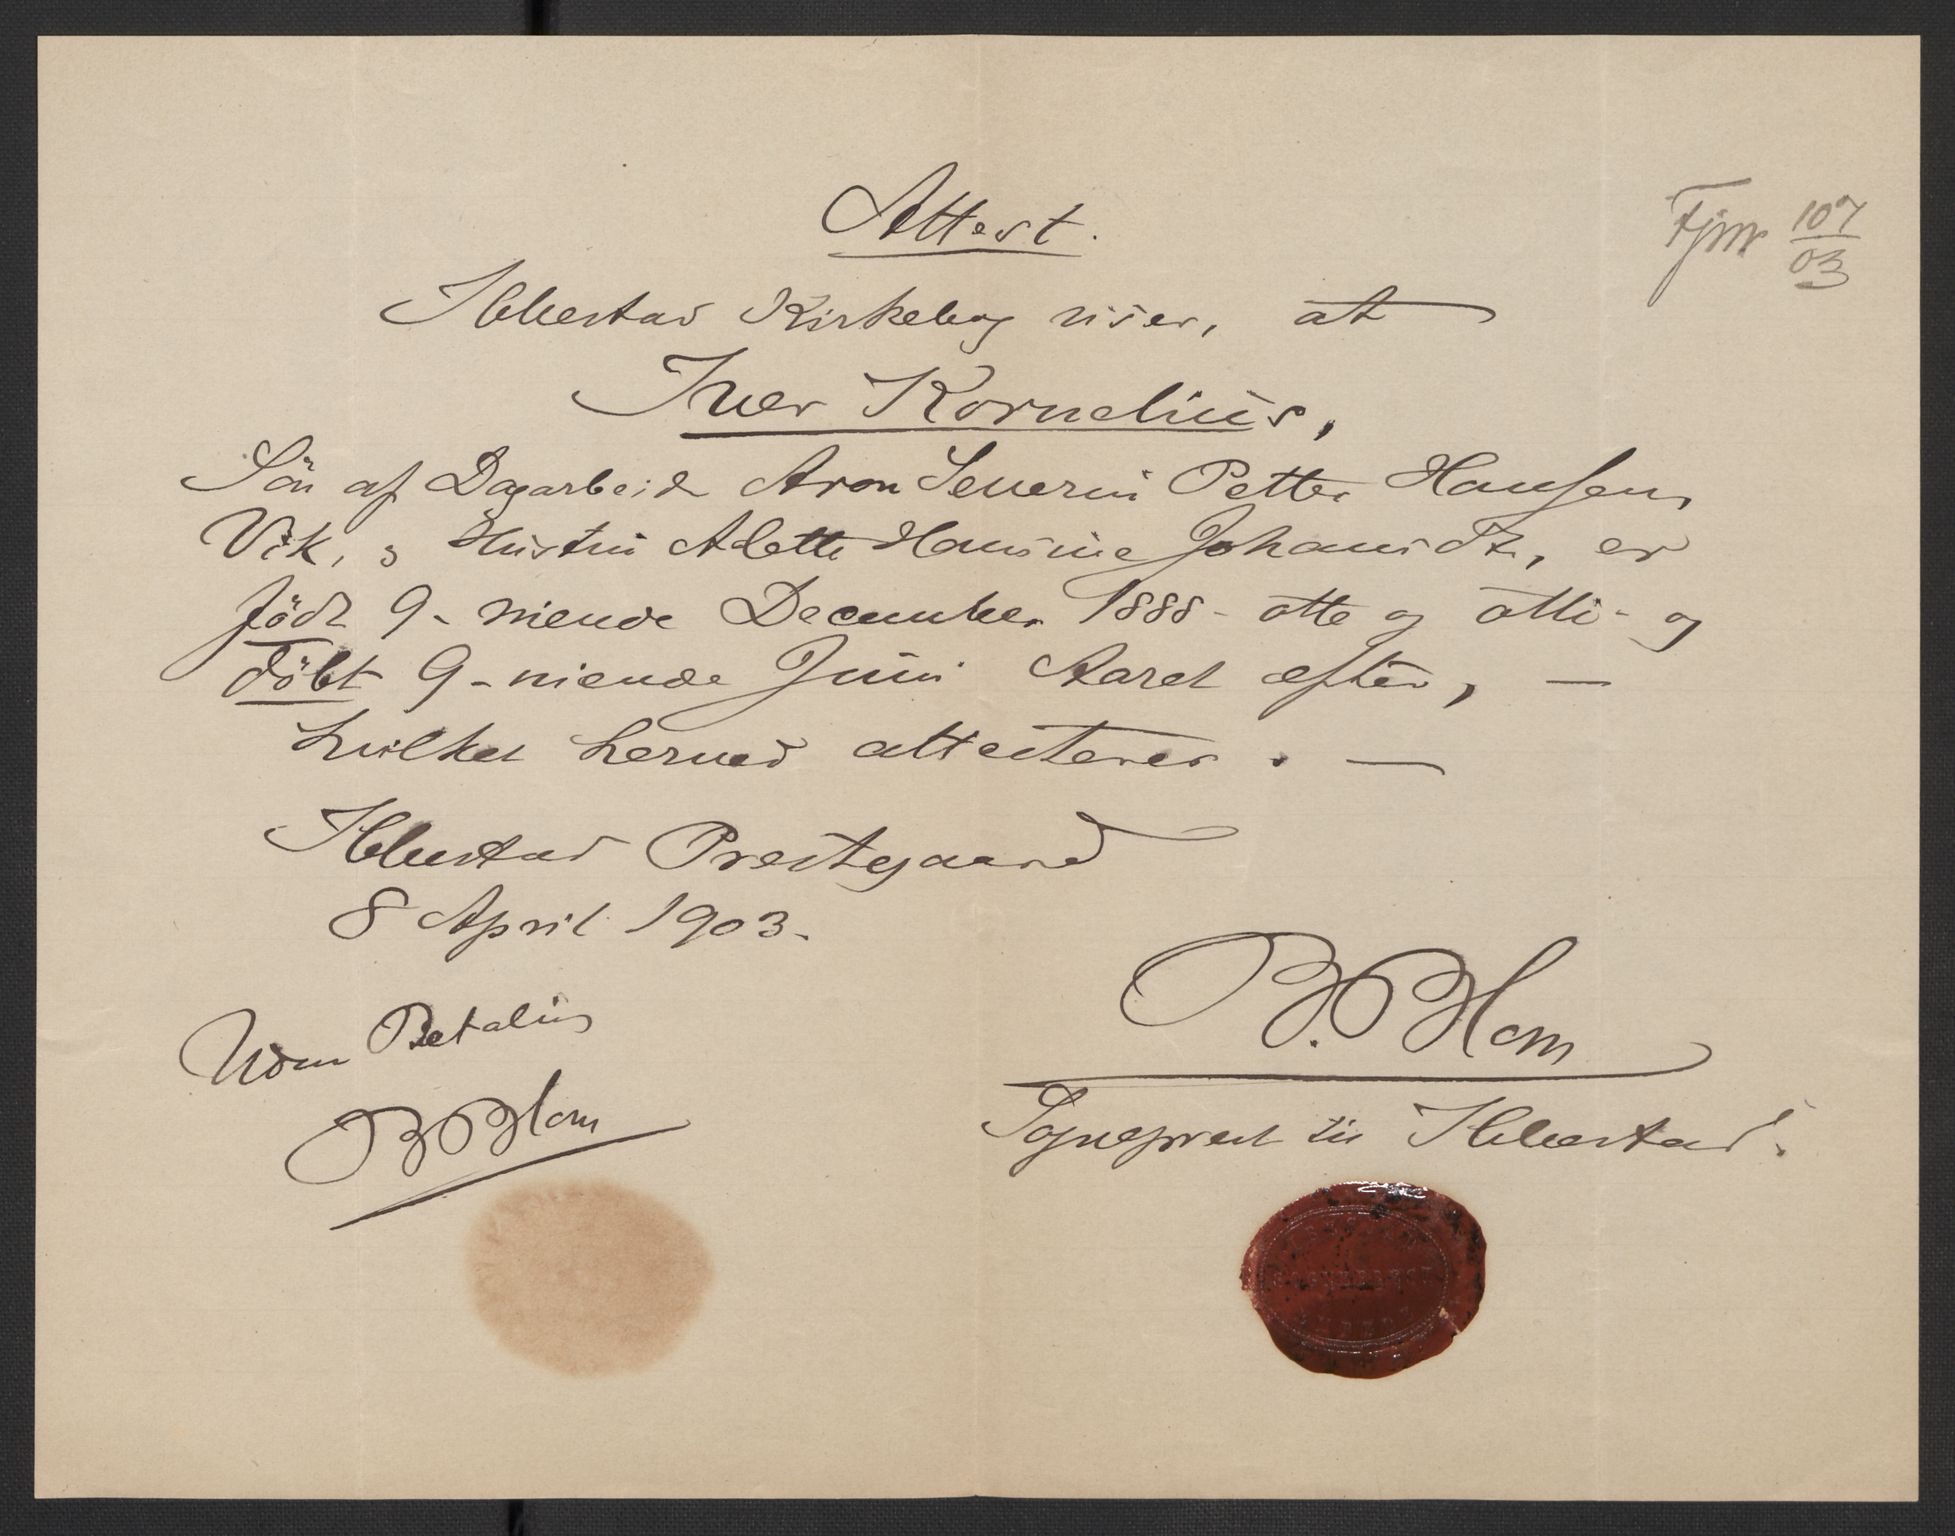 Attest.
Fjnr 107/03
Ibbestad Kirkebog viser, at
Iver Kornelius,
Sön af Dagarbeider Aron Severin Petter Hansen,
Vik, og Hustru Alette Hansine Johansdtr, er
födt 9- niende December 1888- otte og otti- og
döbt 9-niende Juni Aaret efter, —
hvilket herved attesteres. —
Ibbestad Prestegaard
8 April 1903.
Uden Betaling
B Blom
B. Blom
Sogneprest til Ibbestad.